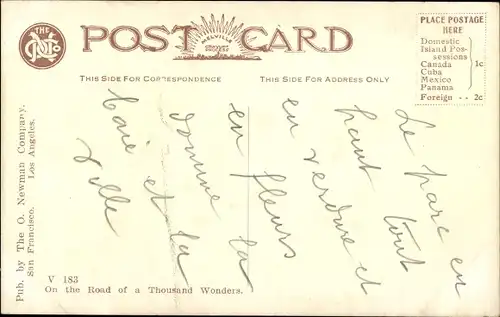 THE
POST CARD
MELVILLE
THIS SIDE FOR CORRESPONDENCE
THIS SIDE FOR ADDRESS ONLY
PLACE POSTAGE
HERE
Domestic
Island Pos-
sessions
Canada
Cuba
Mexico
Panama
1c
Foreign -- 2c
Le parc en
haut tout
en verdure et
en fleurs
domine la
baie et la
ville
Pub. by The O. Newman Company,
San Francisco. Los Angeles.
V 183
On the Road of a Thousand Wonders.